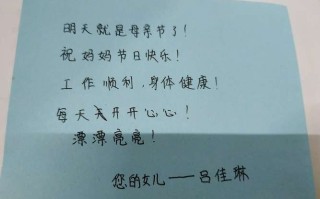 明天就是母亲节了！
祝妈妈节日快乐！
工作顺利，身体健康！
每天开开心心！
漂漂亮亮！
您的女儿——吕佳琳